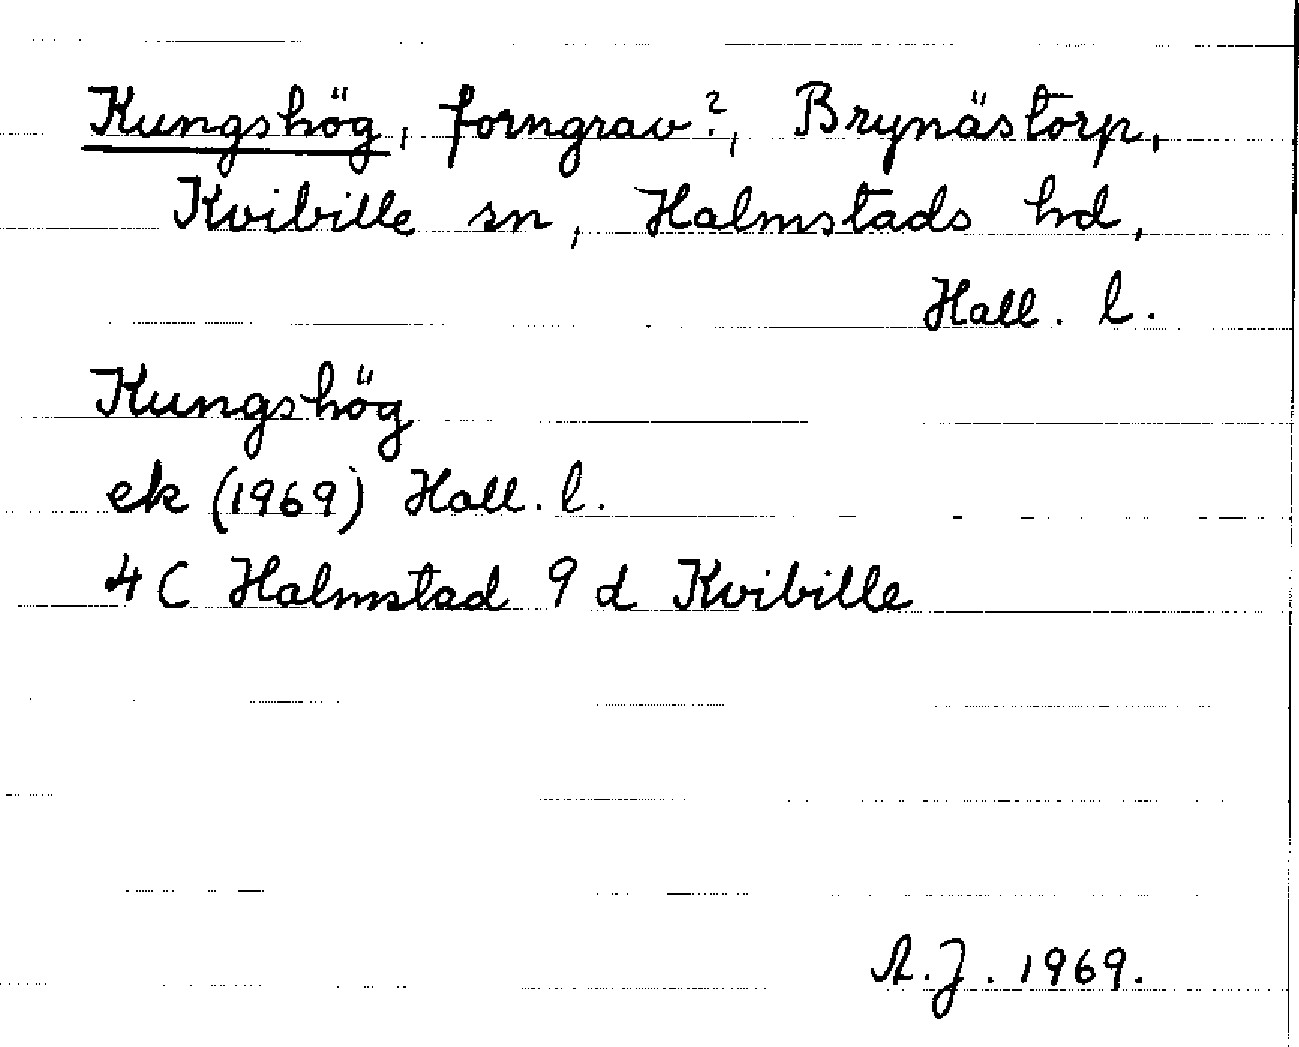 Kungshög, forngrav?, Brynästorp,
Kvibille sn, Halmstads hd,
Hall. l.
Kungshög
ek (1969) Hall. l.
4 C Halmstad 9 d Kvibille
A.J. 1969.